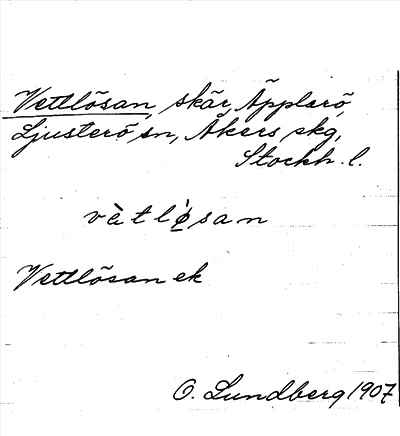 Vettlösan, skär, Äpplarö,
Ljusterö sn, Åkers skg,
Stockh. l.
vȁtlø̀san
Vettlösan ek
O. Lundberg 1907